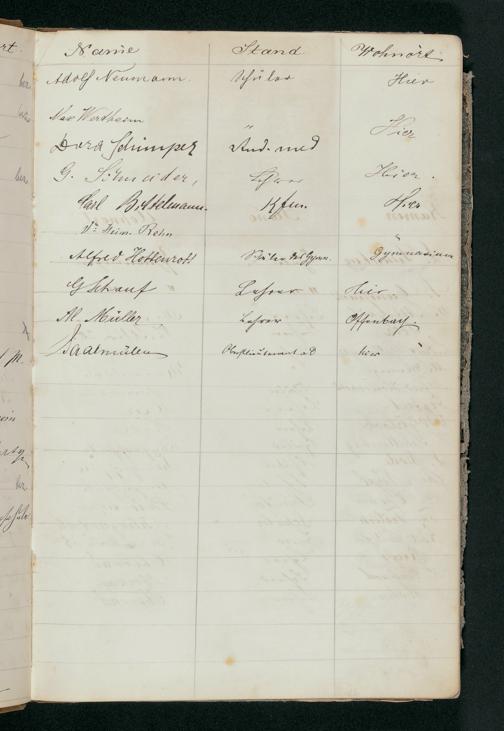 Name Stand Wohnort.
Adolf Neumann. Schüler Hier
Max Wertheim
Dora Schimper stud. med Hier
G. Schneider, Hier.
Carl Bittelmann. Kfm. Hier
Dr Heinr. Rehn
Alfred Hottenrott Schüler des Gymn. Gymnasium
G Schauf Lehrer Hier
Al. Müller Lehrer Offenbach
Saalmüller Oberstlieutenant aD hier